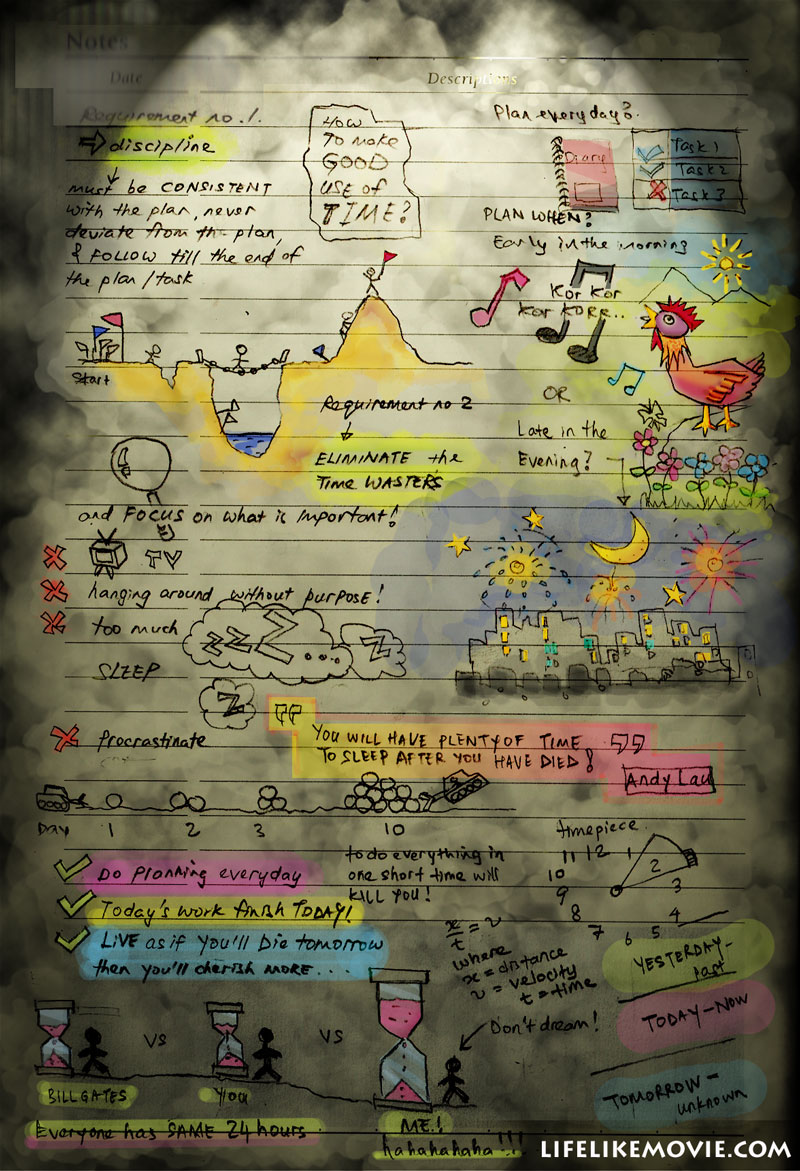 Notes
Date
Descriptions
Requirement no.1.
discipline
must be CONSISTENT
with the plan, never
deviate from the plan,
& FOLLOW till the end of
the plan/task
HOW
TO make
GOOD
USE of
TIME?
Plan everyday?
Diary
Task 1
Task 2
Task 3
PLAN WHEN?
Early in the morning
Kor Kor
Kor KORR..
OR
Late in the
Evening?
Start
Requirement no 2
ELIMINATE the
Time WASTERS
and FOCUS on what is important!
TV
hanging around without purpose!
too much
SLEEP
zzZ...
Z
Z
Procrastinate
YOU WILL HAVE PLENTY OF TIME
TO SLEEP AFTER YOU HAVE DIED!
Andy Lau
Day 1 2 3 10
Do planning everyday
Today's work finish TODAY!
LIVE as if you'll Die tomorrow
then you'll cherish MORE...
to do everything in
one short time will
KILL YOU!
timepiece
11 12 1
10 2
9 3
8 4
7 6 5
x/t = v
where
x = distance
v = velocity
t = time
YESTERDAY-
past
TODAY-NOW
TOMORROW-
unknown
Don't dream!
VS
VS
BILL GATES
YOU
ME!
hahahahaha!!!
Everyone has SAME 24 hours
LIFELIKEMOVIE.COM